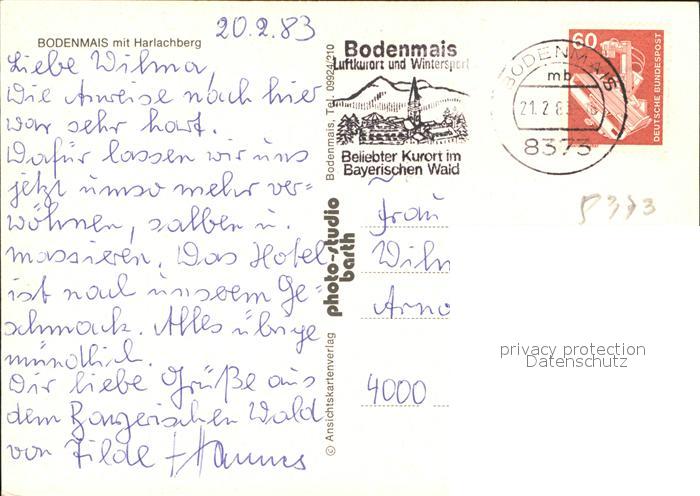 20.2.83
BODENMAIS mit Harlachberg
Liebe Wilma,
Die Anreise nach hier
war sehr hart.
Dafür lassen wir uns
jetzt umso mehr ver=
wöhnen, salben u.
massieren. Das Hotel
ist nach unserem Ge=
schmack. Alles übrige
mündlich.
Dir liebe Grüße aus
dem Bayerischen Wald
von Tilde + Hannes
© Ansichtskartenverlag
photo-studio
barth
Bodenmais, Tel. 09924/210
Bodenmais
Luftkurort und Wintersport
Beliebter Kurort im
Bayerischen Wald
BODENMAIS
mb
21.2.83
8373
60
DEUTSCHE BUNDESPOST
Frau
Wilm
Arno
4000
privacy protection
Datenschutz